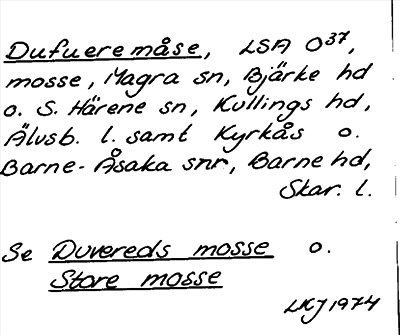 Dufueremåse, LSA O37,
mosse, Magra sn, Bjärke hd
o. S. Härene sn, Kullings hd,
Älvsb. l. samt Kyrkås o.
Barne-Åsaka snr, Barne hd,
Skar. l.
Se Duvereds mosse o.
Store mosse
LKJ 1974